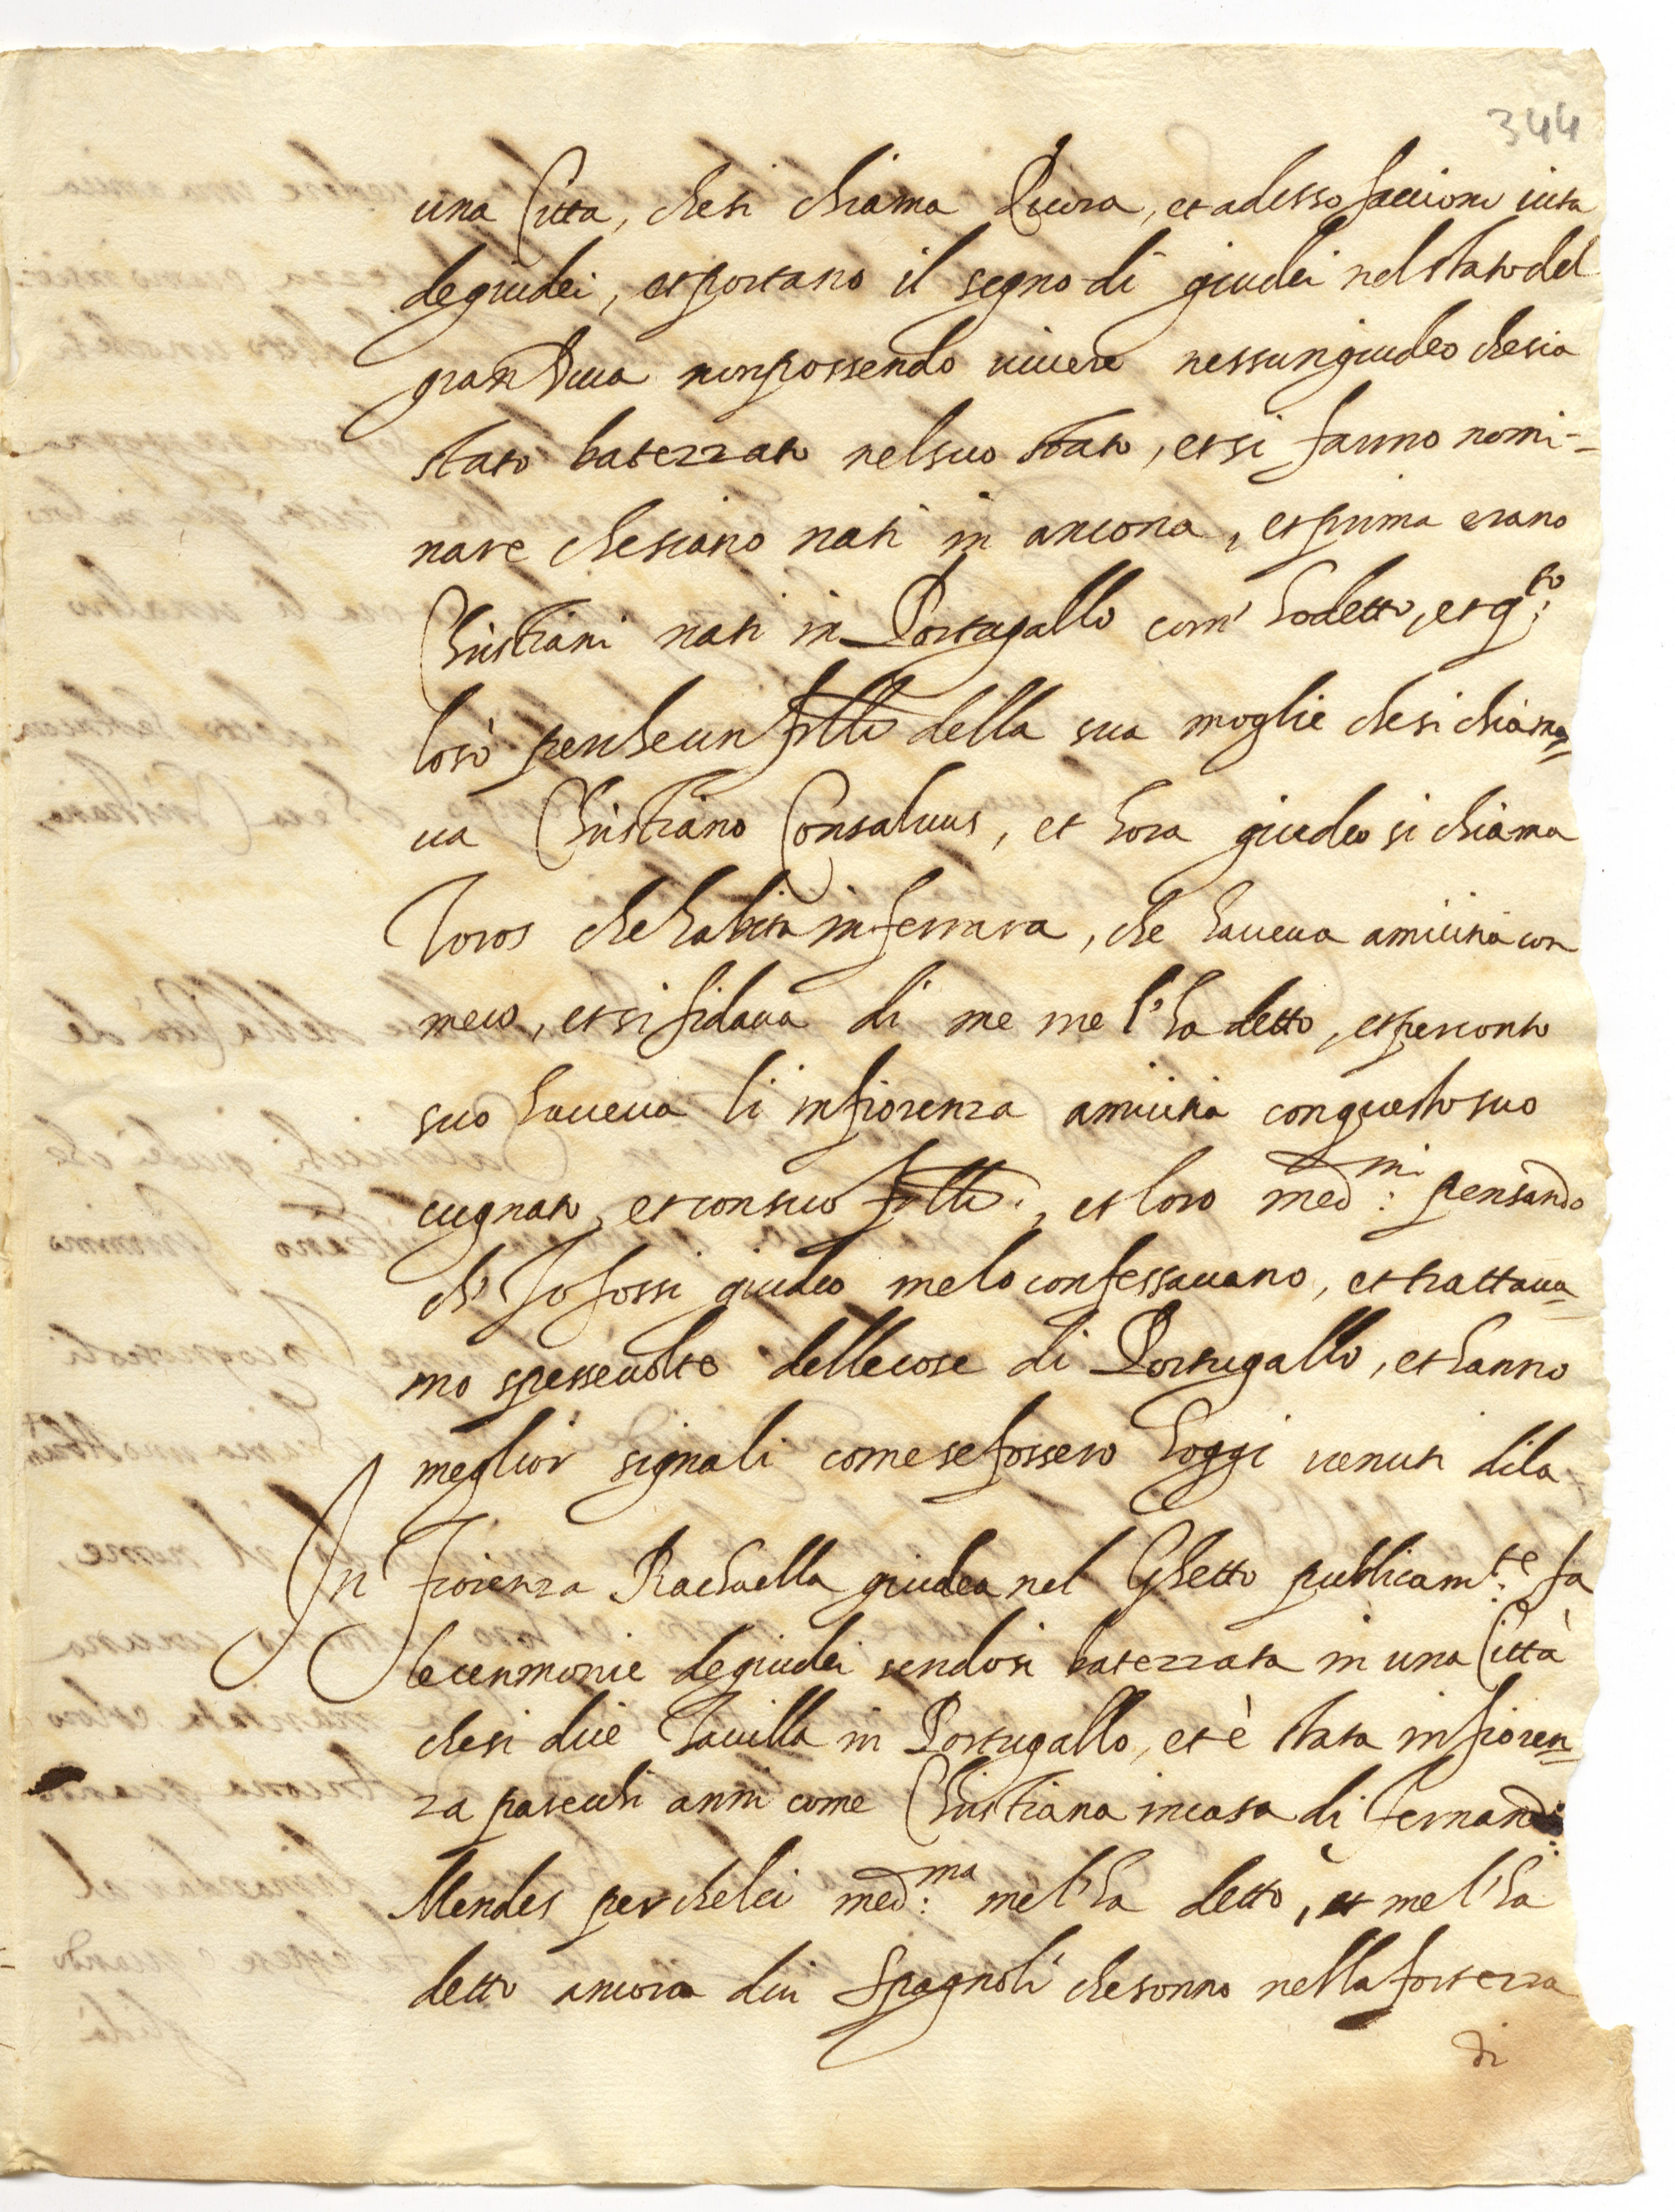 344
una Citta, che si chiama Evora, et adesso faccione vita
de giudei, et portano il segno di giudei nel stato del
gran Duca non possendo vivere nessun giudeo che sia
stato batezzato nel suo stato, et si fanno nomi-
nare che siano nati in ancona, et prima erano
Christiani nati in Portugallo com' ho detto, et q.to
lo sò perche un frllo della sua moglie che si chiama-
ua Christiano Consaluus, et hora giudeo si chiama
Joros che habita in ferrara, che haueua amicitia con
meco, et si fidaua di me me l'ha detto, et per conto
suo haueua li in fiorenza amicitia con questo suo
cugnato, et con suo frllo, et loro med.mi pensando
ch' Jo fossi giudeo me lo confessauano, et trattaua-
mo spesse uolte delle cose di Portugallo, et hanno
meglior signali come se fossero hoggi uenuti di la
In Fiorenza Rachaella giudea nel Ghetto publicam.te fa
le cerimonie de giudei sendosi batezzata in una Città
che si dice Tauilla in Portugallo, et è stata in fioren-
za parechi anni come Christiana in casa di Fernando
Mendes perche lei med.ma me l'ha detto, et me l'ha
detto ancora dui Spagnoli che sonno nella fortezza
di